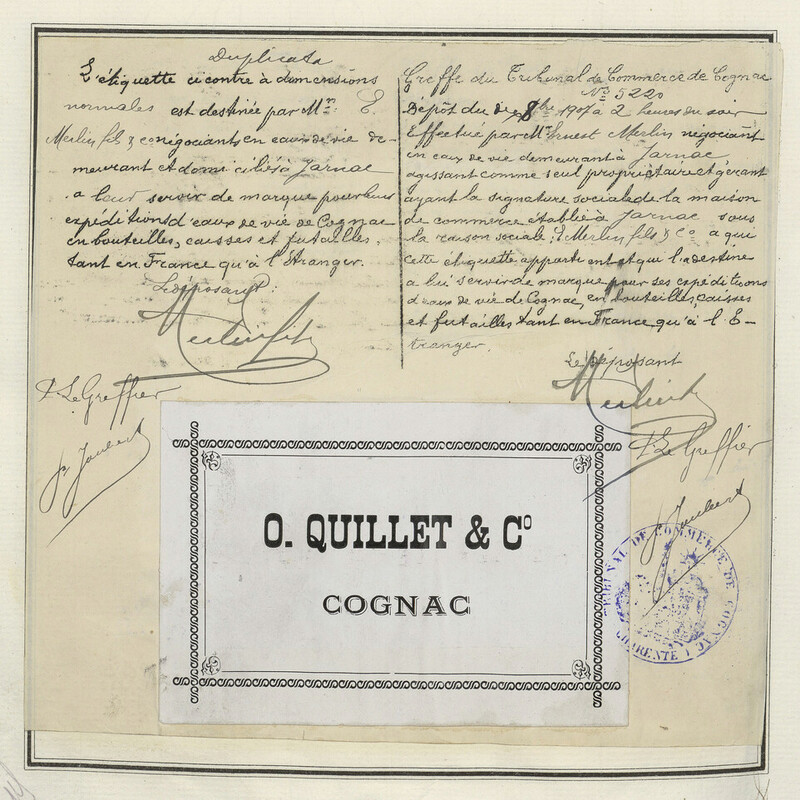 Duplicata
L'étiquette ci contre à dimensions
normales est destinée par Mrs: E.
Merlin fils & Co négociants en eaux de vie de-
meurant et domiciliés à Jarnac
a leur servir de marque pour leurs
expéditions d'eaux de vie de Cognac
en bouteilles, caisses et futailles,
tant en France qu'à l'Etranger.
Le déposant:
Merlin fils
P. Le Greffier
Joubert
Greffe du Tribunal de Commerce de Cognac
No 5220
Dépôt du 8bre 1907 a 2 heures du soir
Effectué par Mr Ernest Merlin négociant
en eaux de vie demeurant à Jarnac
agissant comme seul propriétaire et gérant
ayant la signature sociale de la maison
de commerce établie à Jarnac sous
la raison sociale, E. Merlin fils & Co a qui
cette étiquette appartient et qui la destine
a lui servir de marque pour ses expéditions
d'eaux de vie de Cognac, en bouteilles, caisses
et futailles tant en France qu'à l'E-
tranger.
Le déposant
P. Le Greffier
Joubert
O. QUILLET & Co
COGNAC
TRIBUNAL DE COMMERCE DE COGNAC
(CHARENTE)